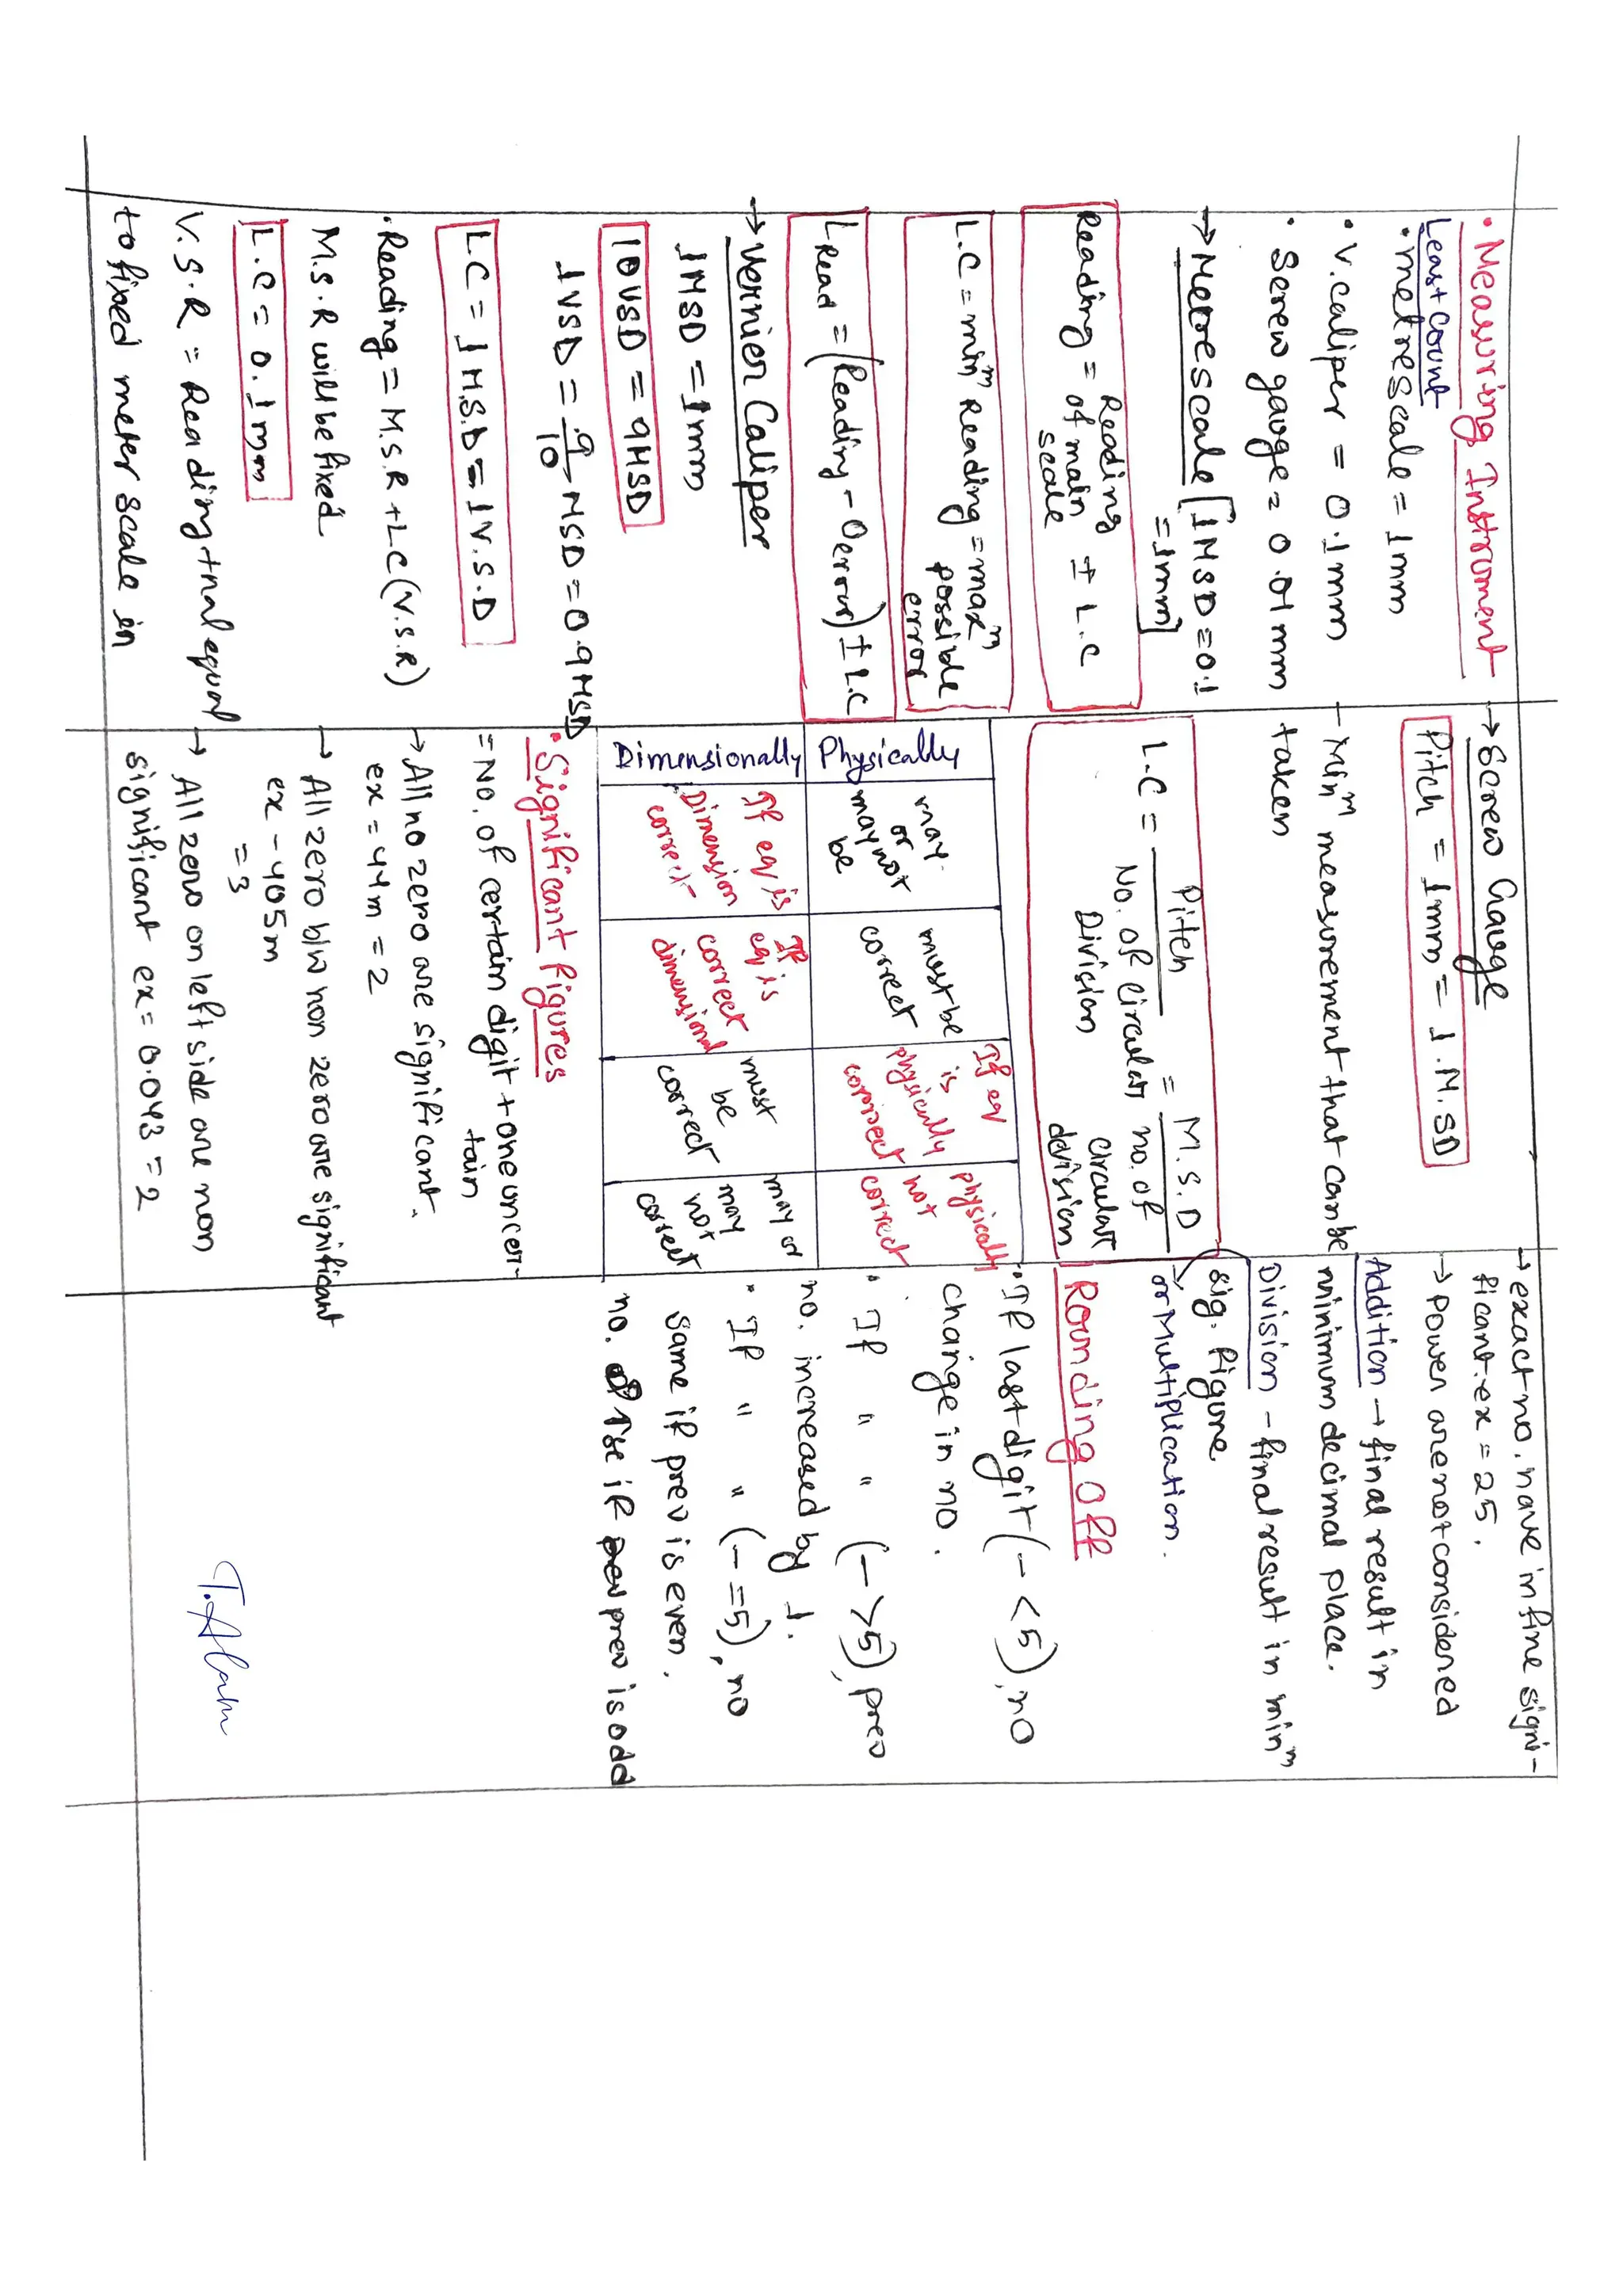 • Measuring Instrument
Least count
• metre scale = 1mm
• V. caliper = 0.1mm
• Screw gauge = 0.01mm
→ Metre scale [1MSD = 0.1
= 1mm]
Reading = Reading of main scale ± L.C
L.C = minᵐ Reading = maxᵐ possible error
L Read = (Reading - 0error) ± L.C
→ Vernier Caliper
1MSD = 1mm
10VSD = 9MSD
1VSD = 9/10 MSD = 0.9MSD
L.C = 1M.S.D = 1V.S.D
• Reading = M.S.R + LC (V.S.R)
M.S.R will be fixed.
L.C = 0.1mm
V.S.R = Reading tnal equal
to fixed meter scale in
→ Screw Gauge
Pitch = 1mm = 1.M.SD
- Minᵐ measurement that can be
taken
L.C = Pitch / No. of Circular Division = M.S.D / no. of circular devision
Physically | may or may not be | must be correct | If eq is physically correct | physically not correct
Dimensionally | If eq is Dimension correct | If eq is correct dimensional | must be correct | may or may not correct
• Significant figures
= No. of certain digit + one uncer-
tain
→ All no zero are significant.
ex = 44m = 2
→ All zero b/w non zero are significant
ex - 405m
= 3
→ All zero on left side are non
significant ex = 0.043 = 2
→ exact no. have infine signi-
ficant. ex = 25.
→ Power are not considered
Addition → final result in
minimum decimal place.
Division - final result in minᵐ
sig. figure.
or Multiplication.
Rounding Off
• If last digit (- < 5), no
change in no.
• If " " (- > 5), prev
no. increased by 1.
• If " " (- = 5), no
same if prev is even.
no. ↑se if prev is odd
T. Alam